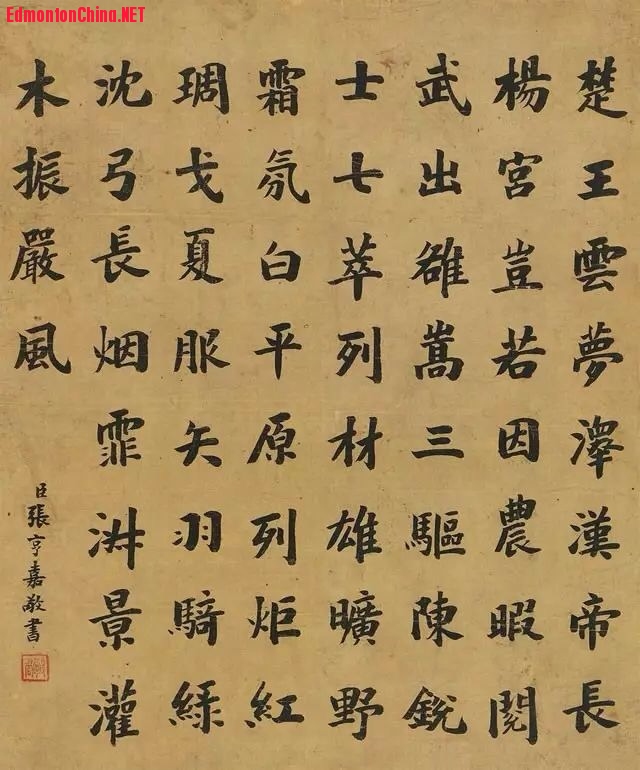 EdmontonChina.NET
楚王雲夢澤漢帝長
楊宮豈若因農暇閱
武出雒嵩三驅陳銳
士七萃列材雄曠野
霜氛白平原列炬紅
琱戈夏服矢羽騎緑
沈弓長烟霏景灌
木振嚴風
臣張亨嘉敬書